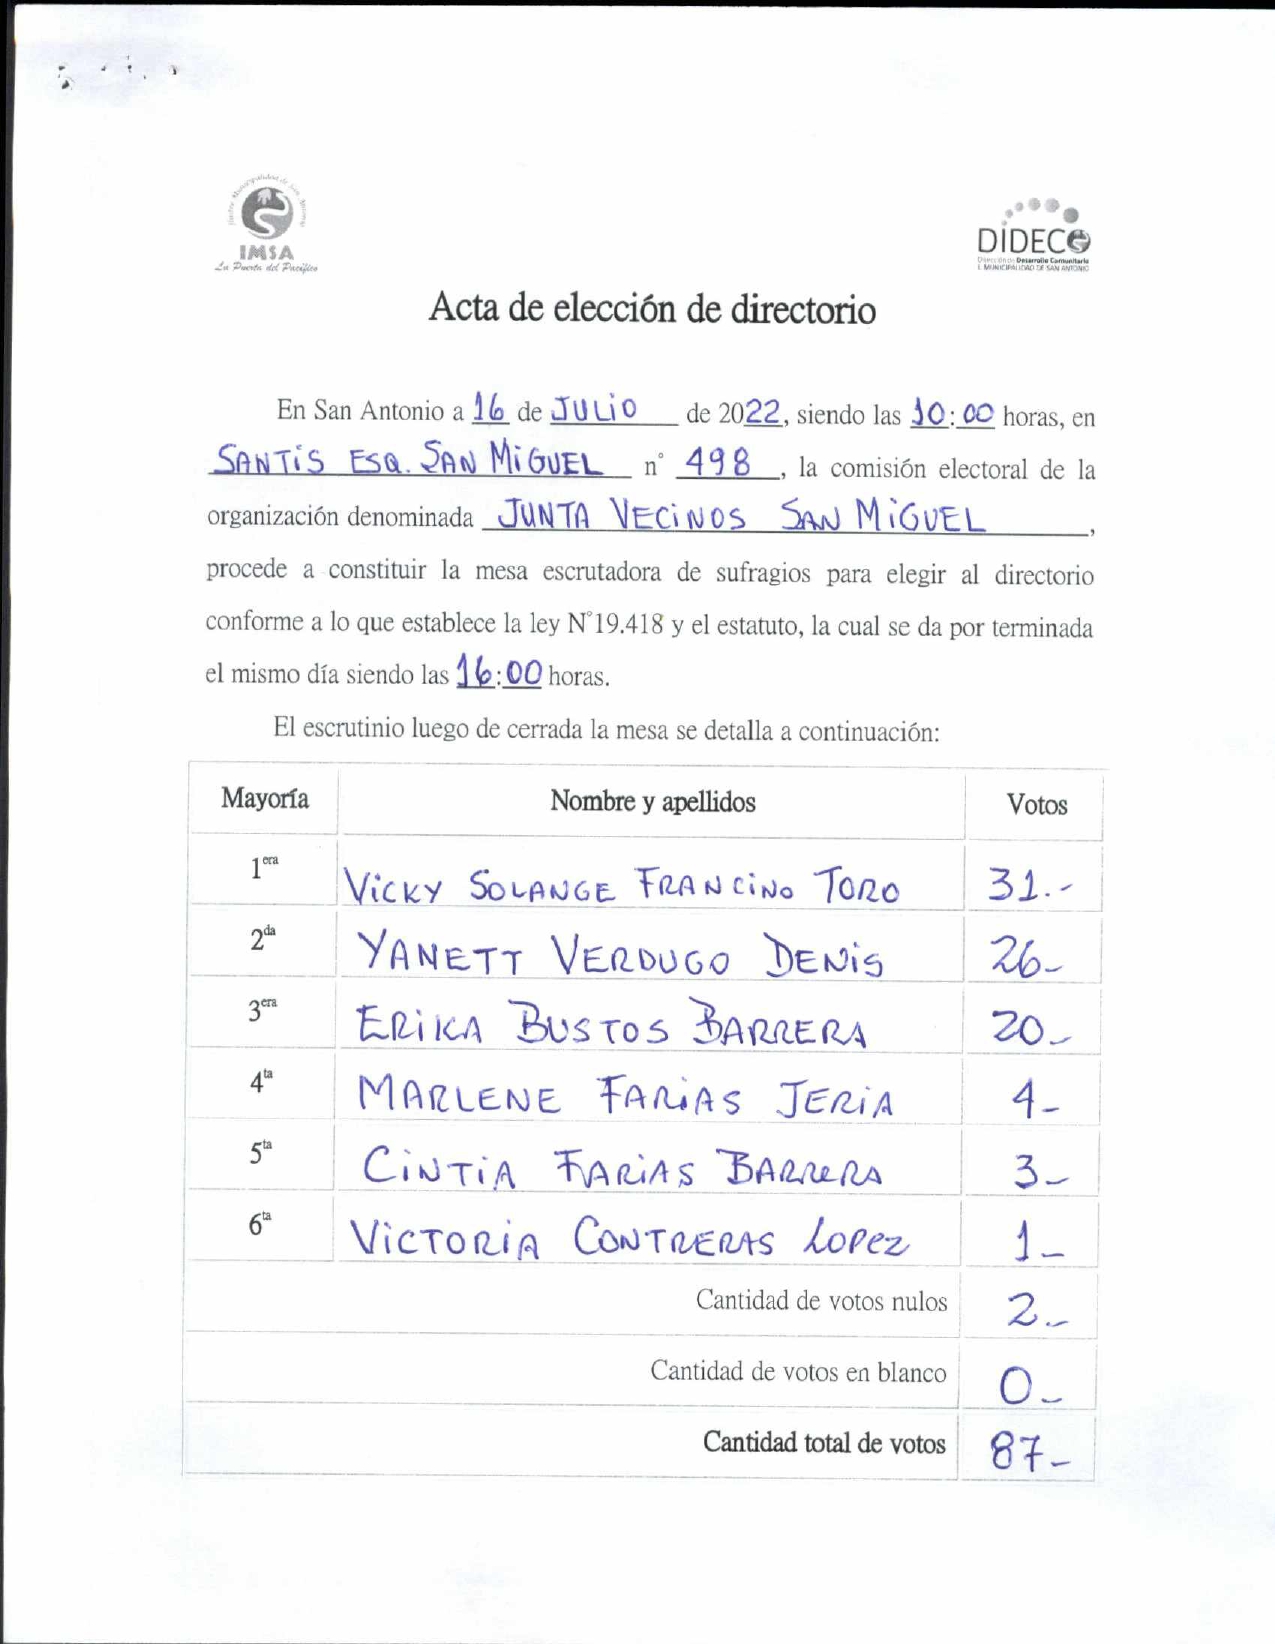 Ilustre Municipalidad de San Antonio
IMSA
La Puerta del Pacífico
DIDECO
Dirección de Desarrollo Comunitario
I. MUNICIPALIDAD DE SAN ANTONIO
Acta de elección de directorio
En San Antonio a 16 de JULIO de 2022, siendo las 10:00 horas, en
SANTIS ESQ. SAN MIGUEL n° 498, la comisión electoral de la
organización denominada JUNTA VECINOS SAN MIGUEL,
procede a constituir la mesa escrutadora de sufragios para elegir al directorio
conforme a lo que establece la ley N°19.418 y el estatuto, la cual se da por terminada
el mismo día siendo las 16:00 horas.
El escrutinio luego de cerrada la mesa se detalla a continuación:
Mayoría Nombre y apellidos Votos
1era VICKY SOLANGE FRANCINO TORO 31.-
2da YANETT VERDUGO DENIS 26-
3era ERIKA BUSTOS BARRERA 20-
4ta MARLENE FARIAS JERIA 4-
5ta CINTIA FARIAS BARRERA 3-
6ta VICTORIA CONTRERAS LOPEZ 1-
Cantidad de votos nulos 2.-
Cantidad de votos en blanco 0-
Cantidad total de votos 87-